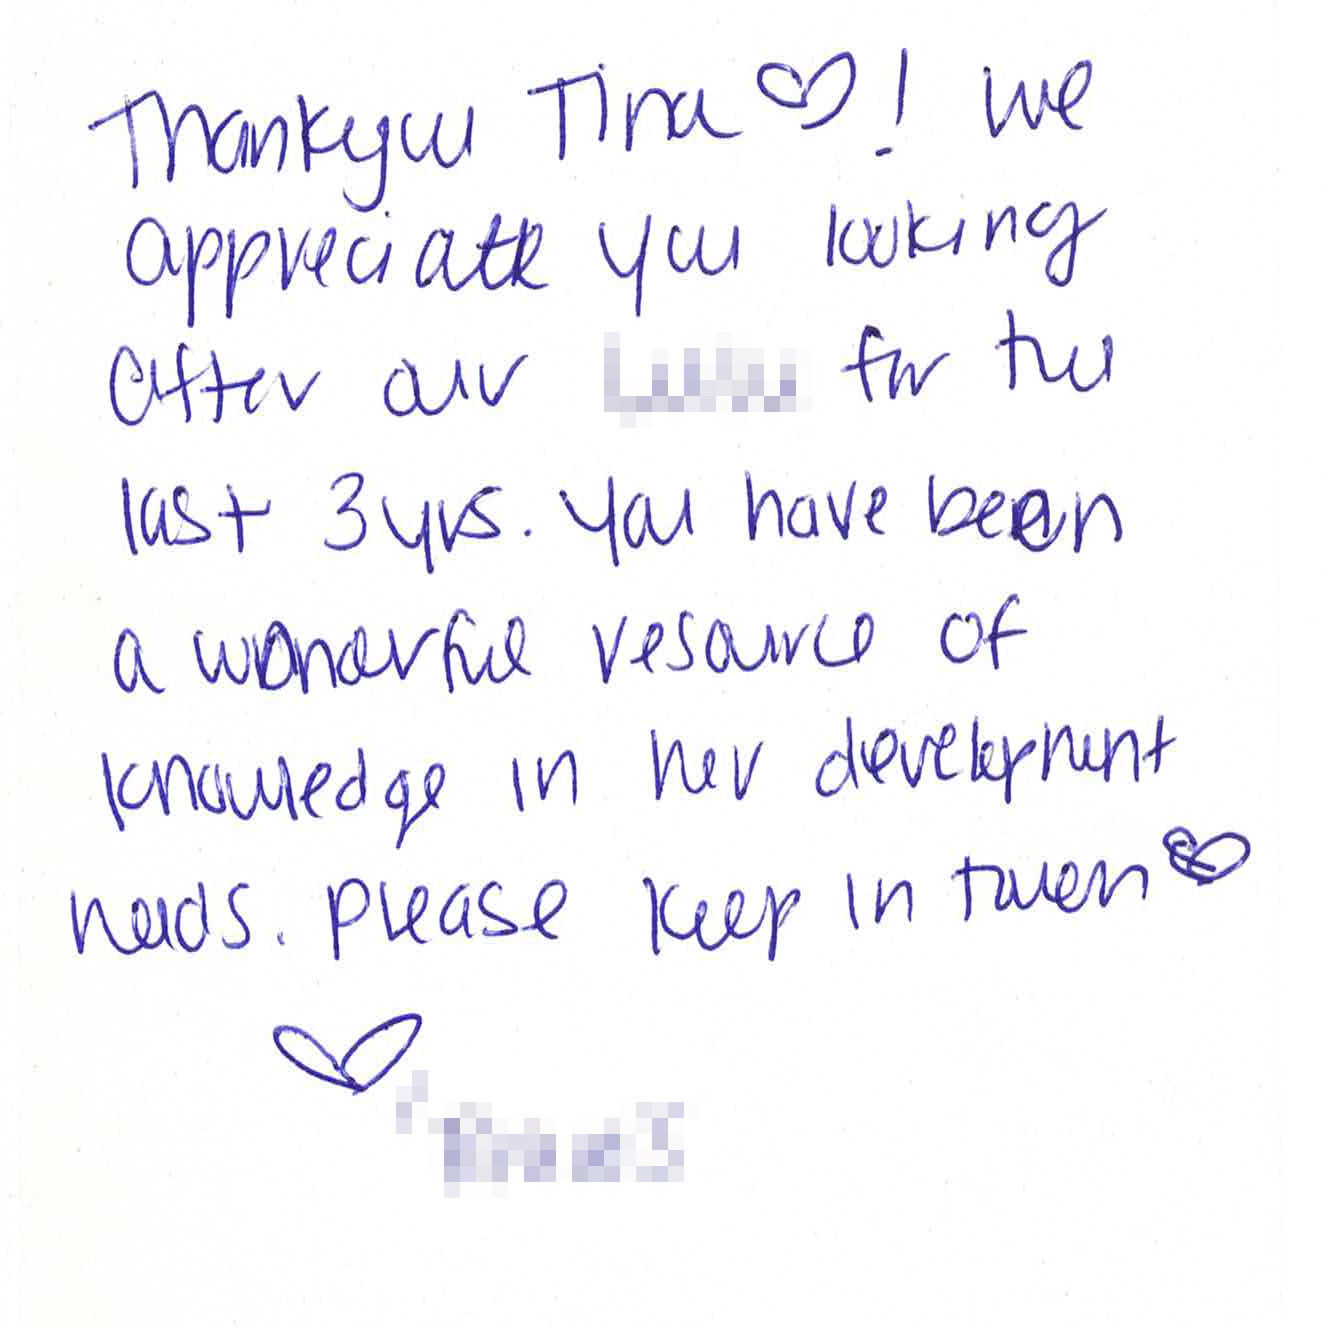 Thankyou Tina ♡! We
appreciate you looking
after our for the
last 3yrs. You have been
a wonderful resource of
knowledge in her development
needs. Please keep in touch ♡
♡